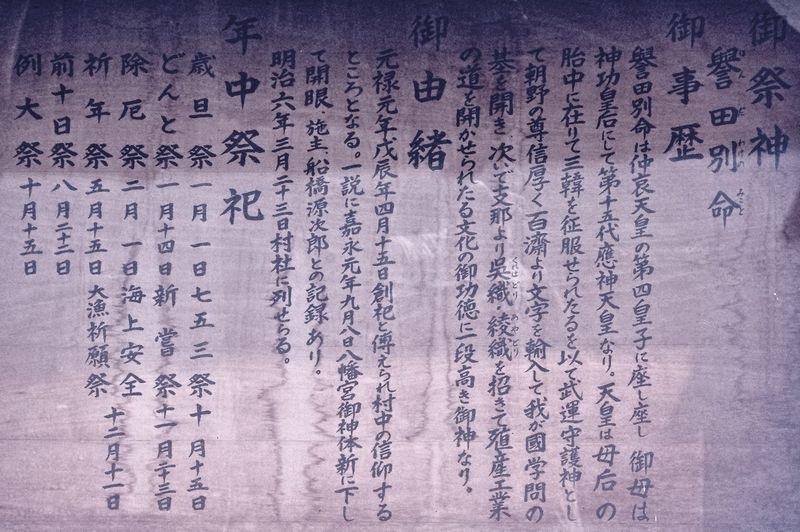 御祭神
譽田別命
御事歴
譽田別命は仲哀天皇の第四皇子に座し座し 御母は
神功皇后にして第十五代應神天皇なり。天皇は母后の
胎中に在りて三韓を征服せられたるを以て武運守護神とし
て朝野の尊信厚く百濟より文字を輸入して我が國学問の
基を開き 次いで支那より呉織・綾織を招きて殖産工業
の道を開かせられたる文化の御功徳に一段高き御神なり。
御由緒
元禄元年戊辰年四月十五日創祀と傳えられ村中の信仰する
ところとなる。一説に嘉永元年九月八日八幡宮御神体新に下し
て開眼・施主、船橋源次郎との記録あり。
明治六年三月二十三日村社に列せらる。
年中祭祀
歳旦祭 一月一日 七五三祭 十月十五日
どんと祭 一月十四日 新嘗祭 十一月二十三日
除厄祭 二月一日 海上安全
祈年祭 五月十五日 大漁祈願祭 十二月十一日
前十日祭 八月二十二日
例大祭 十月十五日